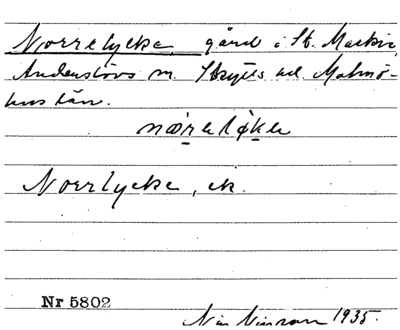 Norrelycke, gård i St. Markie,
Anderslövs m. Skytts hd. Malmö-
hus län.
nørelykə
Norrlycke, ek.
Nr 5802
Nils Nilsson 1935.